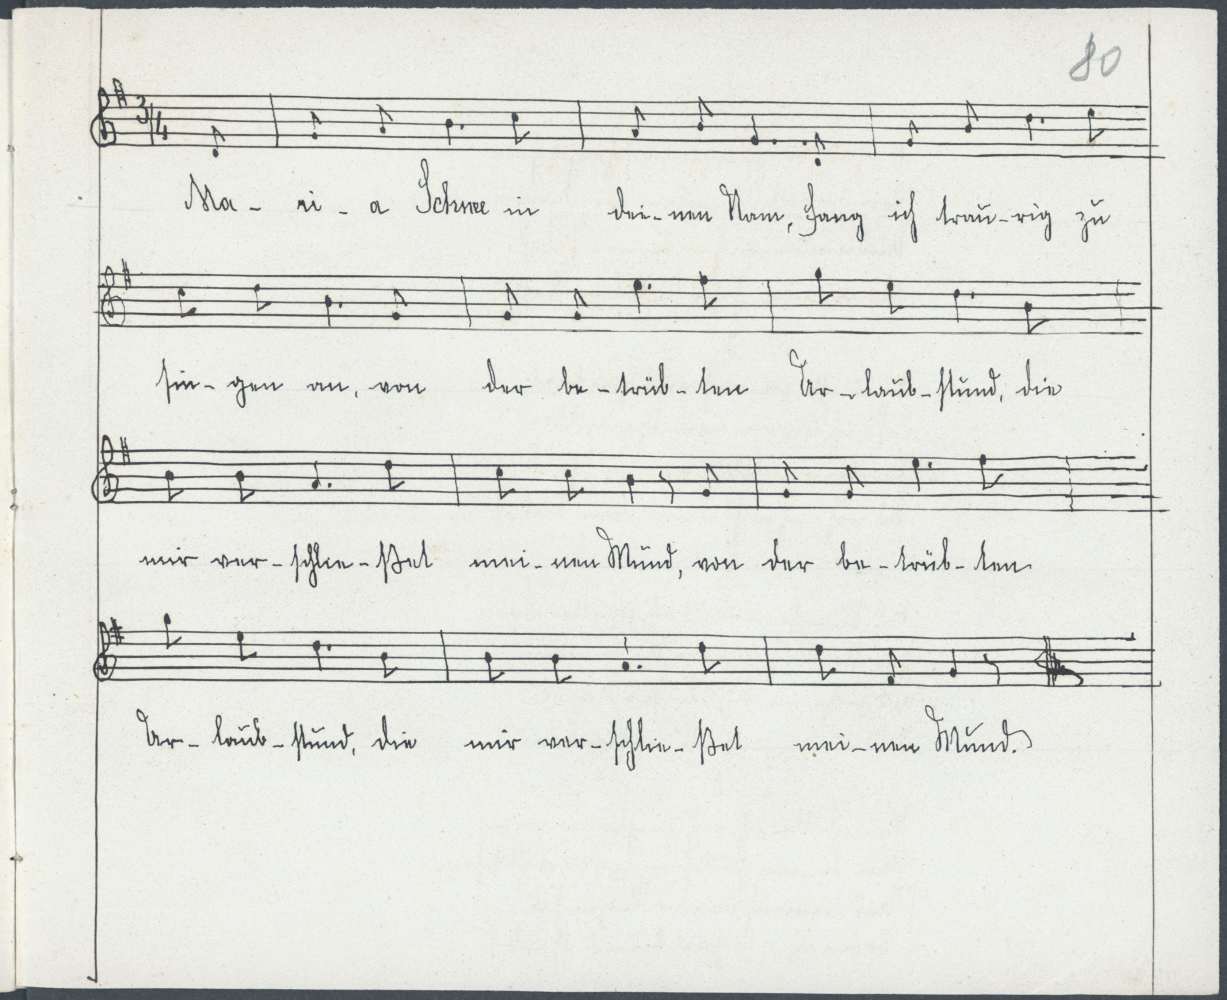 80
3/4
Ma - ri - a Schnee in dei - nen Nam, fang ich trau - rig zu
sin - gen an, von der be - trüb - ten Ur - laub - stund, die
mir ver - schlie - ßet mei - nen Mund, von der be - trüb - ten
Ur - laub - stund, die mir ver - schlie - ßet mei - nen Mund.